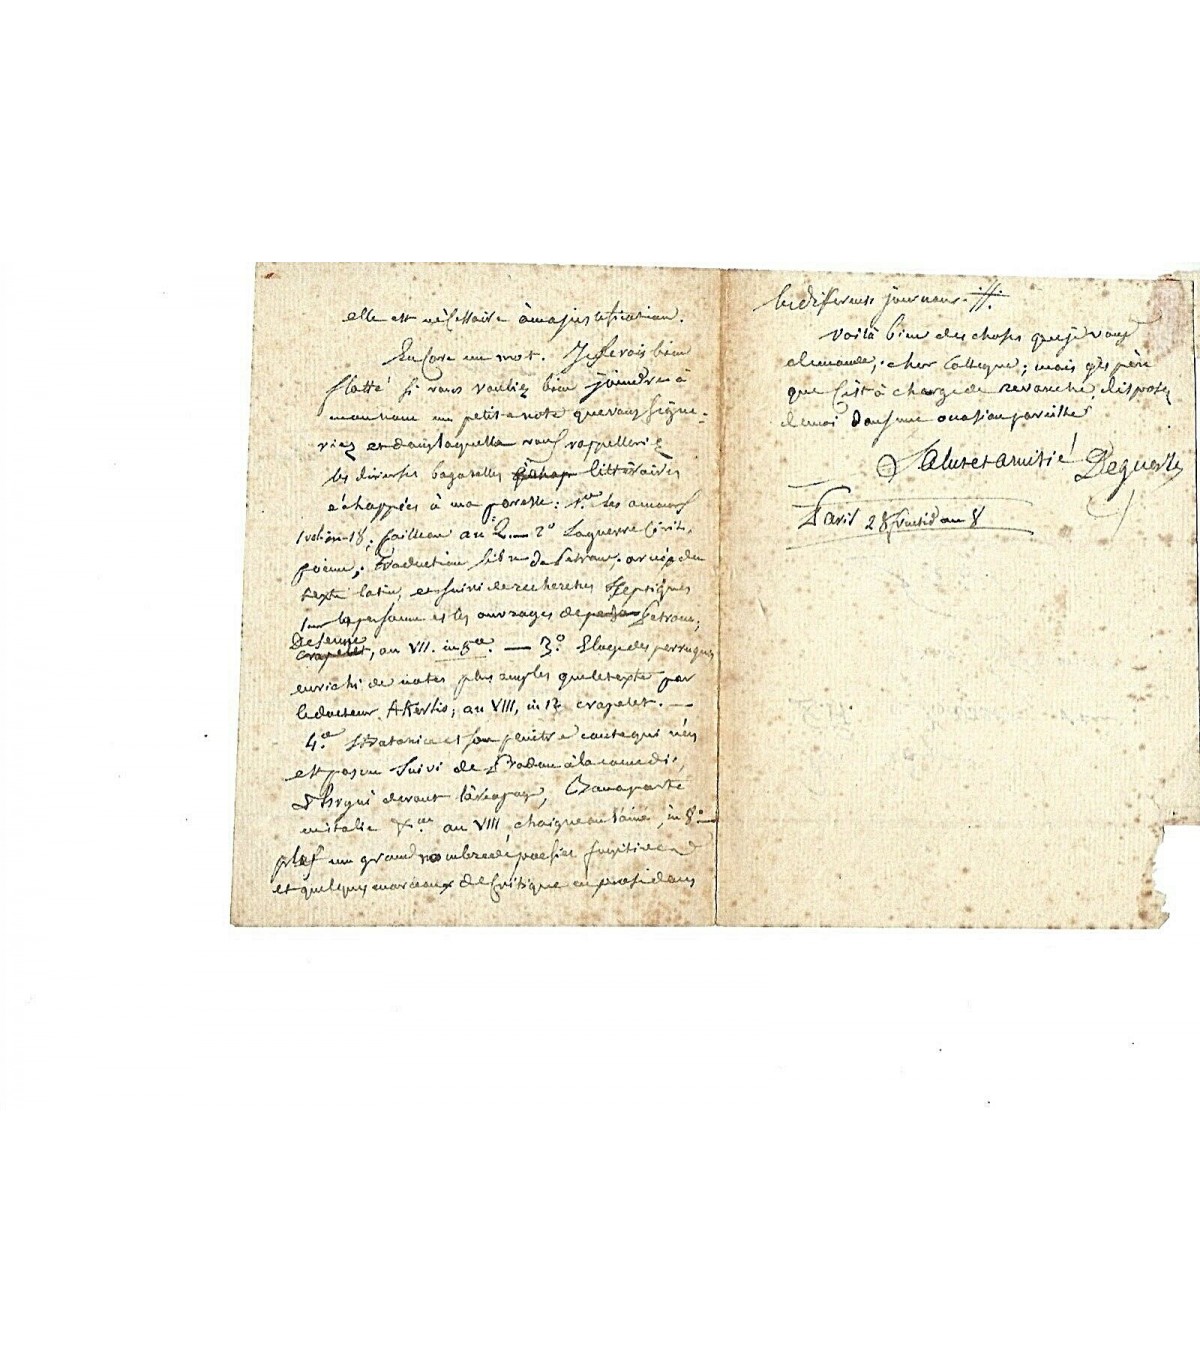 elle est nécessaire à ma justification.
Encore un mot. Je serois bien
flatté si vous vouliez bien joindre à
mon nom une petite note que vous signe-
riez et dans laquelle vous rappelleriez
les diverses bagatelles échap littéraires
échappées à ma paresse: 1.° Les amours
1 vol. in-18; Cailleau an 2. — 2° La guerre Civile,
poème; traduction libre de Petrone, avec le
texte latin, et suivi de recherches sceptiques
sur la personne et les ouvrages de Petrone;
Desenne
Crapelet, an VII. in 8°. — 3.° Eloge des perruques
enrichi de notes plus amples que le texte par
le docteur Akerlio; an VIII, in 12 crapelet. —
4.° Stratonice et son peintre conte qui n'en
est pas un suivi de Pradon à la comédie,
Phryné devant l'aréopage, Bonaparte
en italie an VIII, chaigneau l'ainé, in 8°
plus un grand nombre de poesies fugitives
et quelques morceaux de Critique en prose dans
les differents journaux.
Voilà bien des choses que je vous
demande, cher Collegue; mais
que c'est à charge de revanche, disposez
de moi dans une occasion pareille
Salut et amitié Deguerle
Paris 28 fructid an 8